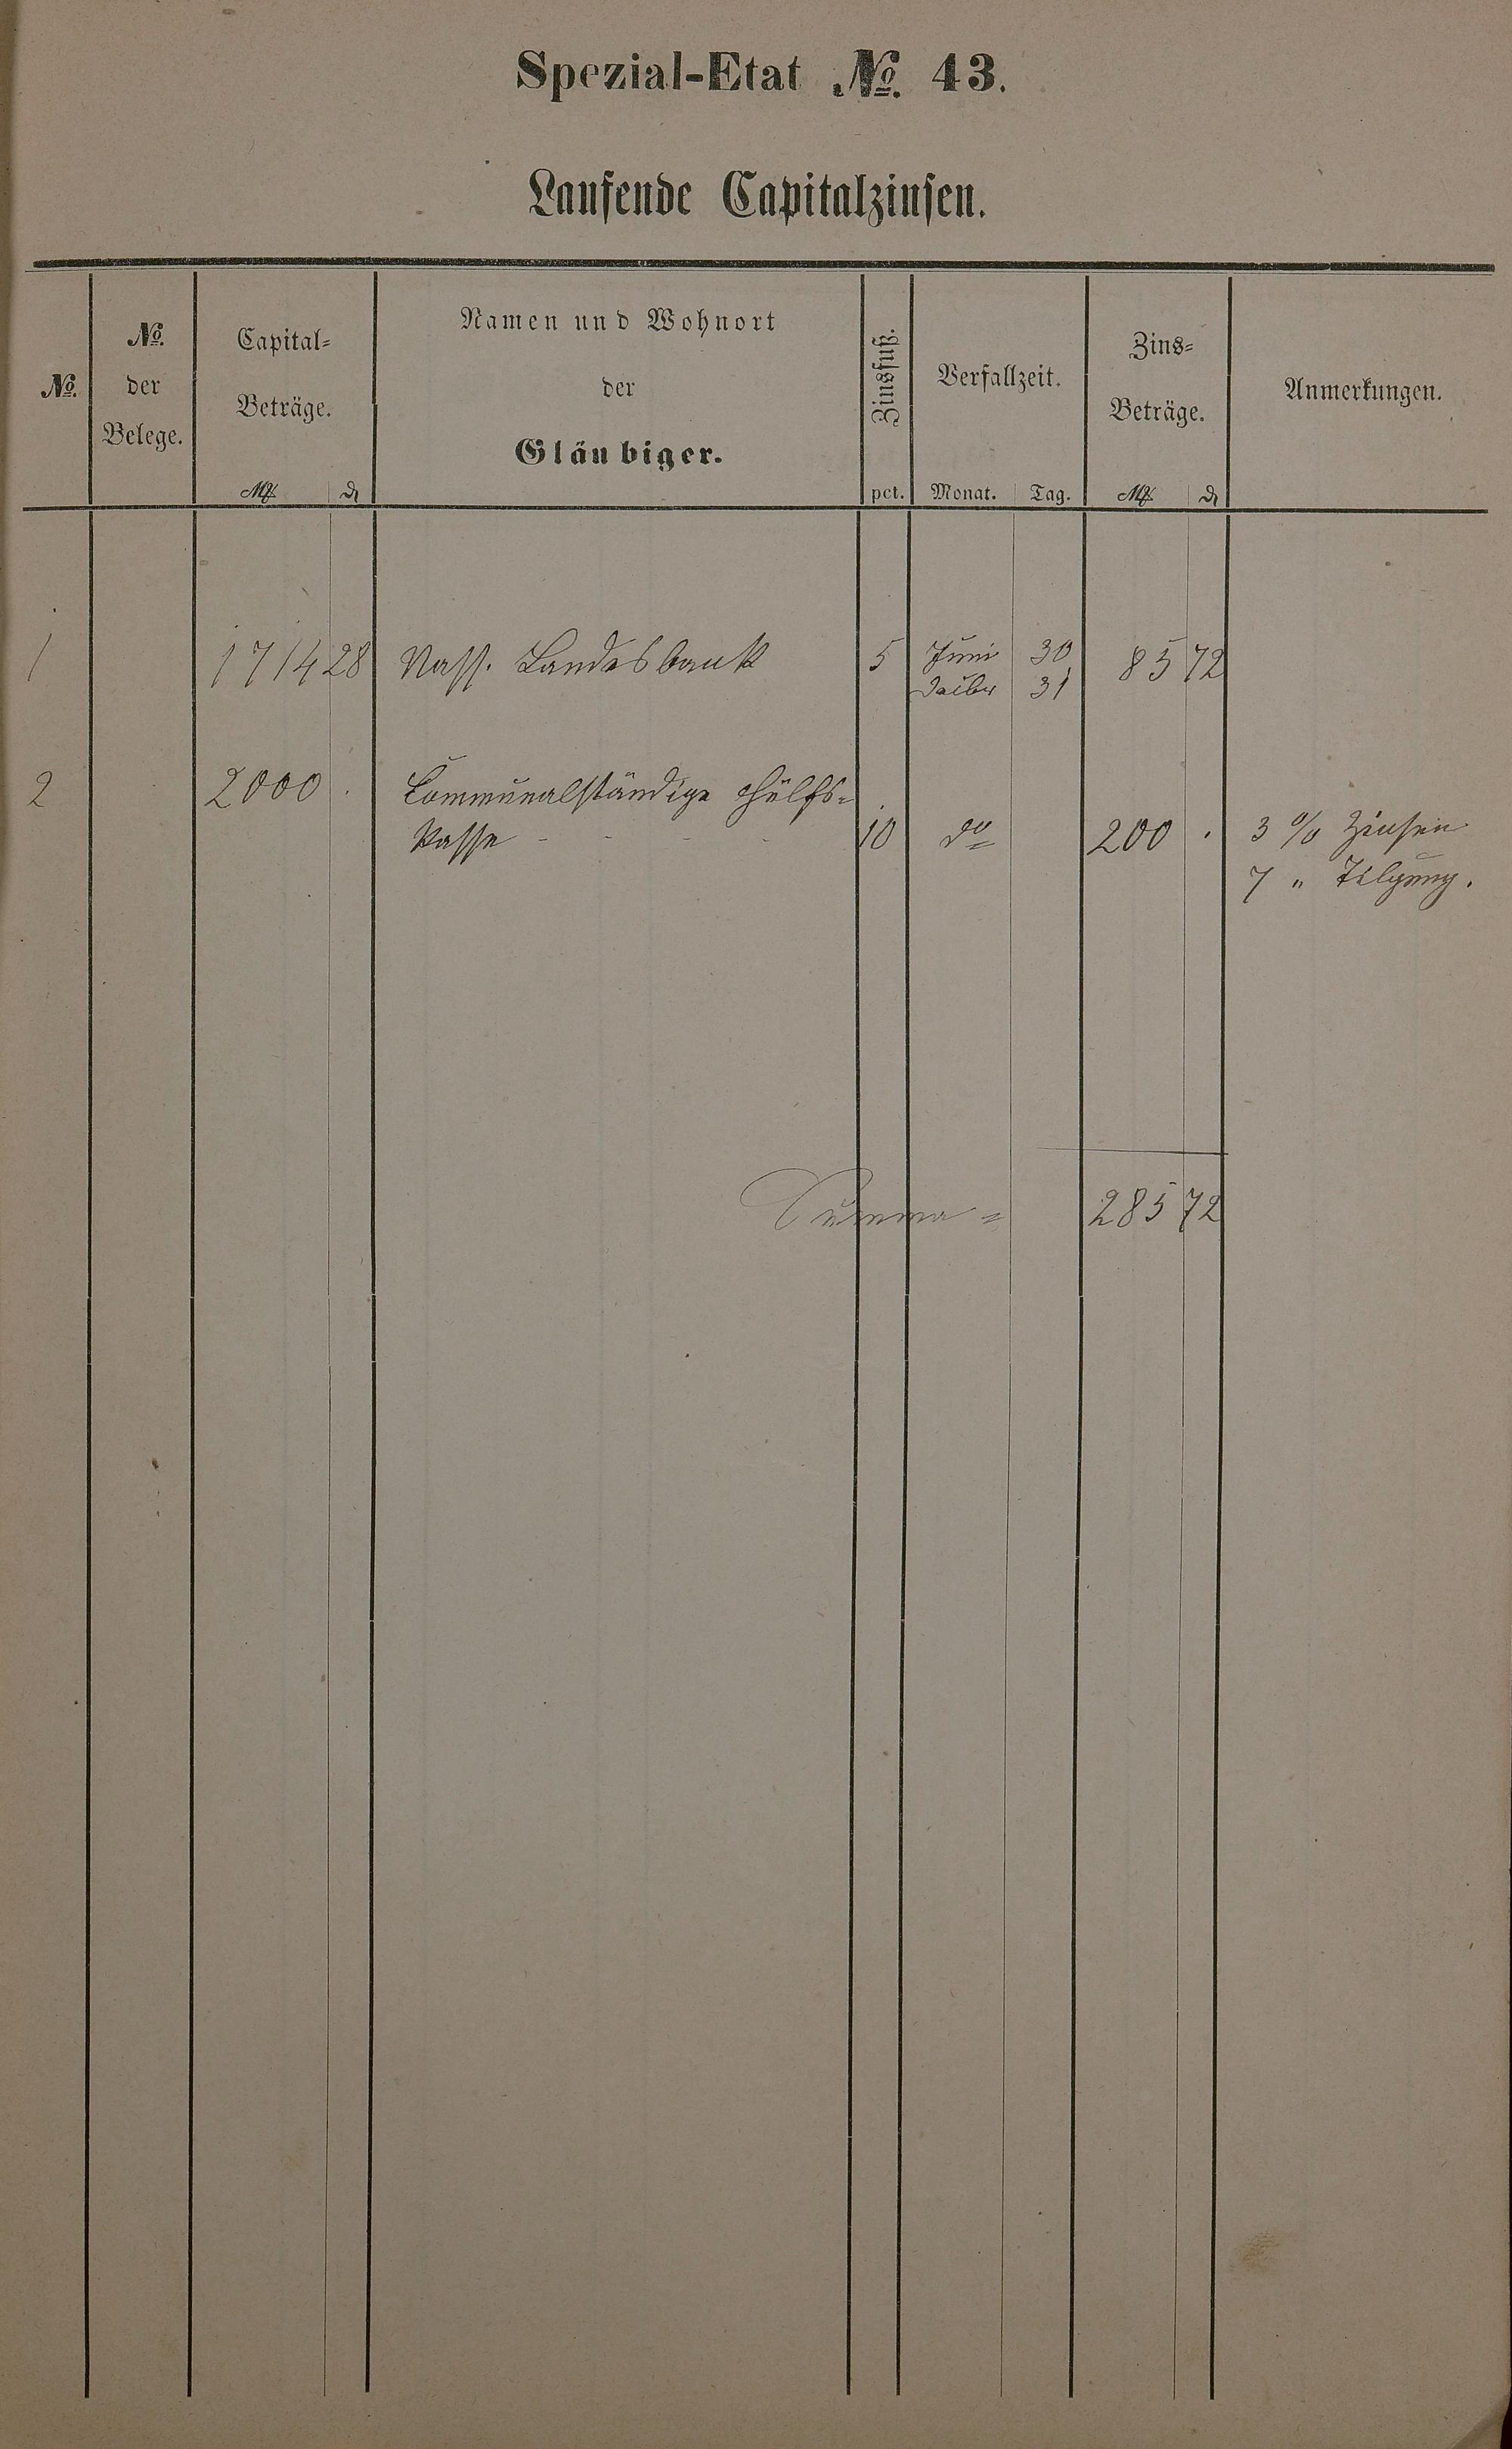 Spezial-Etat №. 43.
Laufende Capitalzinsen.
№.
№.
der
Belege.
Capital-
Beträge.
ℳ ₰
Namen und Wohnort
der
Gläubiger.
Zinsfuß.
pct.
Verfallzeit.
Monat. Tag.
Zins-
Beträge.
ℳ ₰
Anmerkungen.
1 1714 28 Nass. Landesbank 5 Juni 30 85 72
31
2 2000 . Communalständige Hülfs-
Kasse - - - - 10 do 200 . 3 % Zinsen
7 " Tilgung.
Summa = 285 72